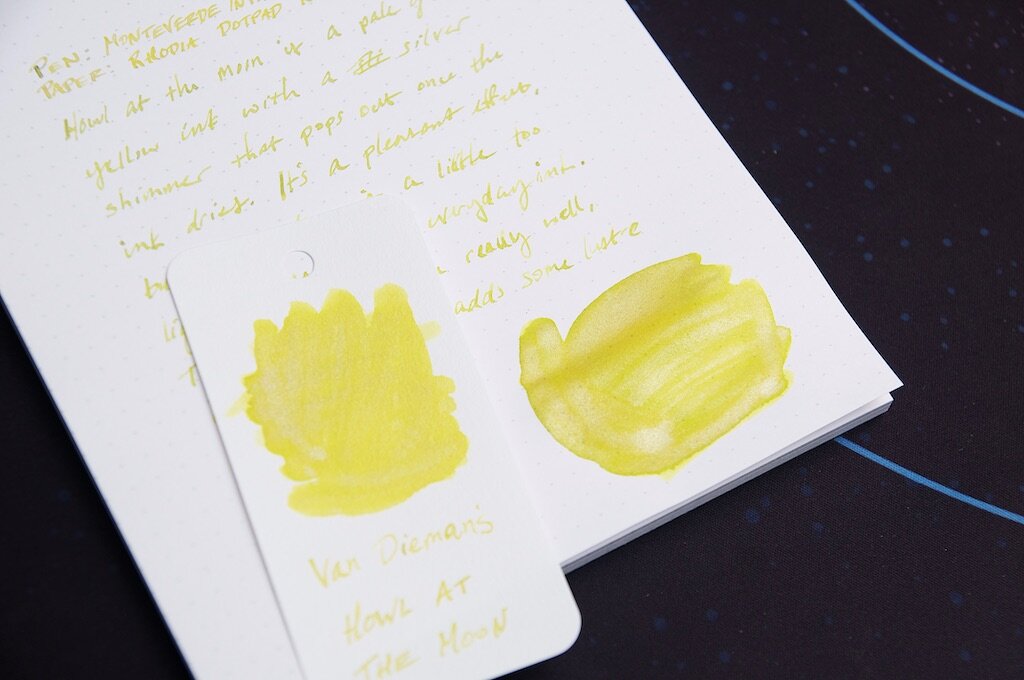 PEN: MONTEVERDE
PAPER: RHODIA DOTPAD
Howl at the moon is a pale
yellow ink with a silver
shimmer that pops out once the
ink dries. It's a pleasant effect,
a little too
everyday ink.
really well,
adds some lustre
Van Dieman's
HOWL AT
THE MOON